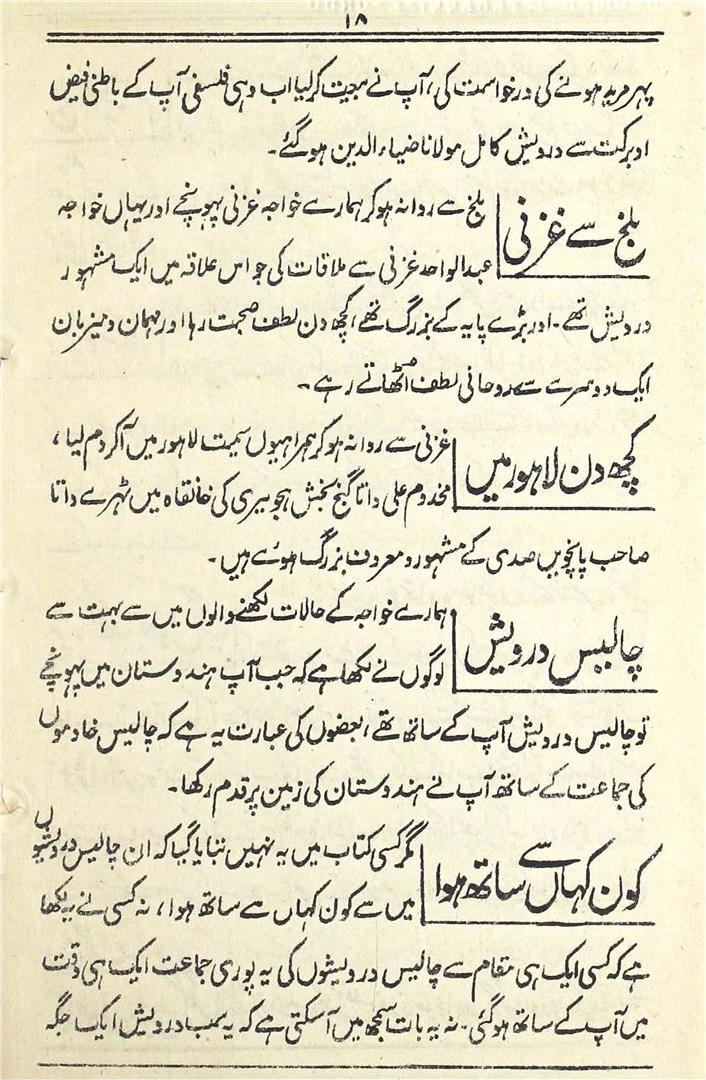 ۱۸
پہر مرید ہونے کی درخواست کی، آپ نے بیعت کرلیا اب وہی فلسفی آپ کے باطنی فیض
اوبرکت سے درویش کامل مولانا ضیاء الدین ہو گئے۔
بلخ سے غزنی
بلخ سے روانہ ہوکر ہمارے خواجہ غزنی پہونچے اور یہاں خواجہ
عبدالواحد غزنی سے ملاقات کی جو اس علاقہ میں ایک مشہور
درویش تھے۔ اور بڑے پایہ کے بزرگ تھے کچھ دن لطف صحبت رہا اور مہمان و میزبان
ایک دوسرے سے روحانی لطف اُٹھاتے رہے۔
کچھ دن لاہور میں
غزنی سے روانہ ہوکر ہمراہیوں سمیت لاہور میں آکر دم لیا،
مخدوم علی داتا گنج بخش ہجویری کی خانقاہ میں ٹہرے داتا
صاحب پانچویں صدی کے مشہور و معروف بزرگ ہوئے ہیں۔
چالیس درویش
ہمارے خواجہ کے حالات لکھنے والوں میں سے بہت سے
لوگوں نے لکھا ہے کہ جب آپ ہندوستان میں پہونچے
تو چالیس درویش آپ کے ساتھ تھے، بعضوں کی عبارت یہ ہے کہ چالیس خادموں
کی جماعت کے ساتھ آپ نے ہندوستان کی زمین پر قدم رکھا۔
کون کہاں سے ساتھ ہوا
مگر کسی کتاب میں یہ نہیں بتایا گیا کہ ان چالیس درویشوں
میں سے کون کہاں سے ساتھ ہوا، نہ کسی نے یہ لکھا
ہے کہ کسی ایک ہی مقام سے چالیس درویشوں کی یہ پوری جماعت ایک ہی وقت
میں آپ کے ساتھ ہوگئی۔ نہ یہ بات سمجھ میں آسکتی ہے کہ یہ سب درویش ایک جگہ